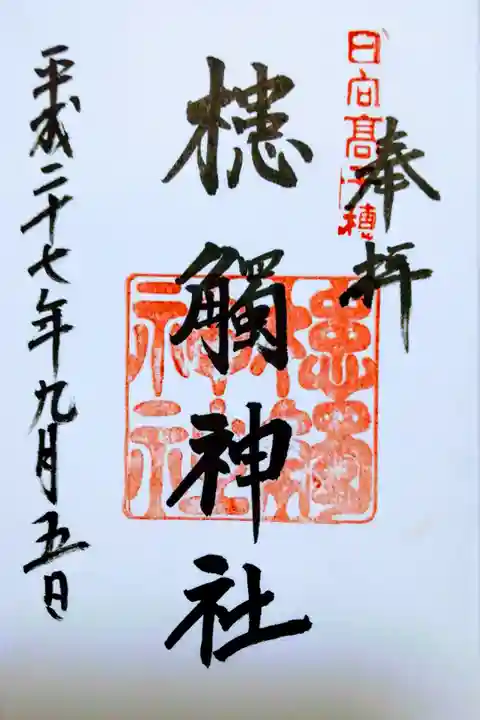 奉拝
日向高千穂
槵觸神社
槵觸神社
平成二十七年九月五日